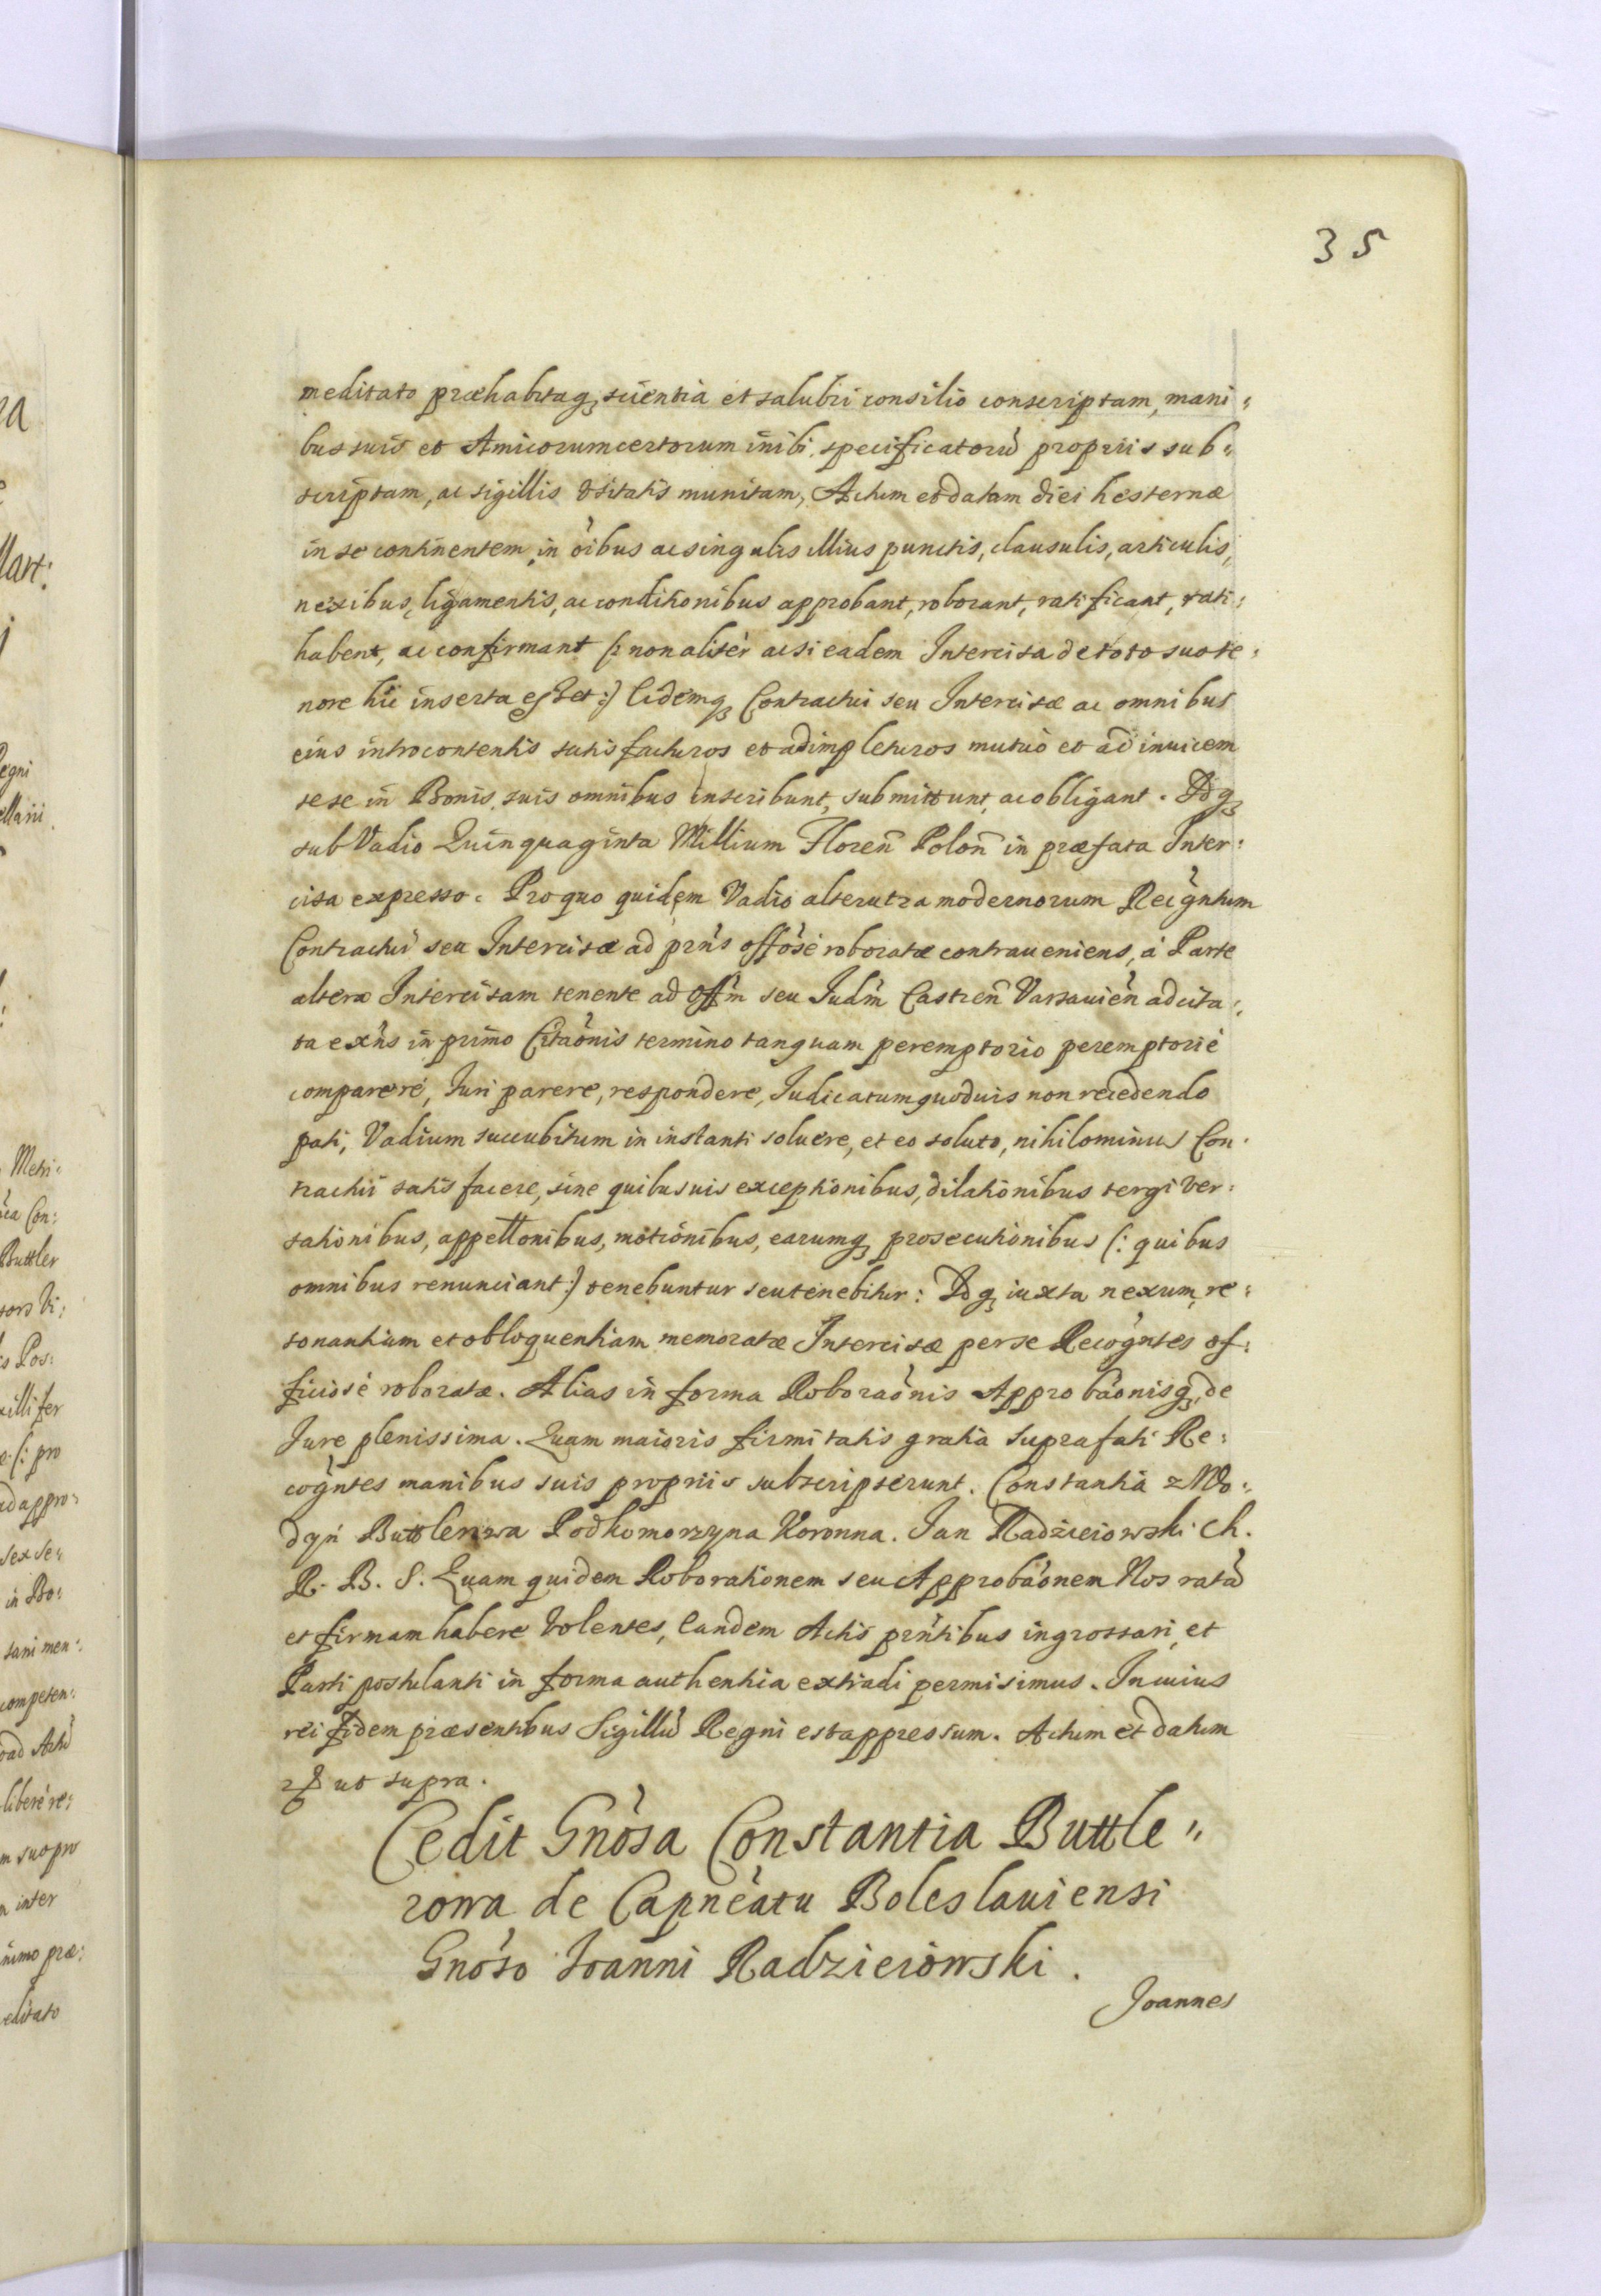 35
meditato præhabitaq; scientia et salubri consilio conscriptam, mani:
bus suis et Amicorum certorum inibi specificatorũ proprijs sub:
scriptam, ac sigillis vsitatis munitam, Actum et datam diei hesternæ
in se continentem, in õibus ac singulis illius punctis, clausulis, articulis,
nexibus, ligamentis, ac conditionibus approbant, roborant, ratificant, rati:
habent, ac confirmant (: non alitèr ac si eadem Intercisa de toto suo te:
nore hic inserta esset :) Eidemq; Contractui seu Intercisæ ac omnibus
eius introcontentis satisfacturos et adimpleturos mutuò et ad inuicem
sese in Bonis suis omnibus inscribunt, submittunt, ac obligant. Idq;
sub Vadio Quinquaginta Millium Floren̄ Polon̄ in præfata Inter:
cisa expresso. Pro quo quidem Vadio alterutra modernorum Recõgntum
Contractui seu Intercisæ ad prñs offõsè roboratæ contraueniens, à Parte
altera Intercisam tenente ad Offm̃ seu Iudm̃ Castren̄ Varsauień adcita:
ta exñs in primo Citaõnis termino tanquam peremptorio peremptoriè
comparere, Iuri parere, respondere, Iudicatum quoduis non recedendo
pati, Vadium succubitum in instanti soluere, et eo soluto, nihilominus Con:
tractui satisfacere, sine quibusuis exceptionibus, dilationibus tergiver:
sationibus, appellonibus, motionibus, earumq; prosecutionibus (: quibus
omnibus renunciant :) tenebuntur seu tenebitur: Idq; iuxta nexum, re:
sonantiam et obloquentiam memoratæ Intercisæ per se Recõgntes of:
ficiosè roboratæ. Alias in forma Roboraõnis Approbaõnisq; de
Jure plenissima. Quam maioris firmitatis gratia suprafati Re:
cõgntes manibus suis proprijs subscripserunt. Constantia z Wo:
dyń Buttlerowa Podkomorzyna Koronna. Jan Radzieiowski Ch.
R. B. S. Quam quidem Roborationem seu Approbaõnem Nos ratã
et firmam habere Volentes, Eandem Actis prñtibus ingrossari, et
Parti postulanti in forma authentica extradi permisimus. In cuius
rei fidem præsentibus Sigillũ Regni est appressum. Actum et datum
ut supra.
Cedit Gnõsa Constantia Buttle:
rowa de Capneãtu Boleslauiensi
Gnõso Ioanni Radzieiowski.
Joannes